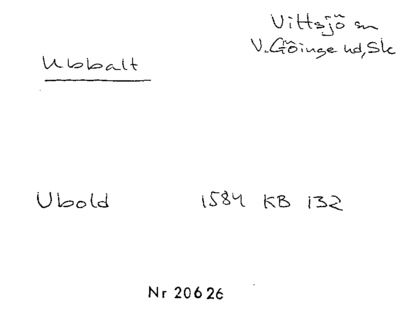 Vittsjö sn
V. Göinge hd, Sk
Ubbalt
Ubold 1584 KB 132
Nr 20626